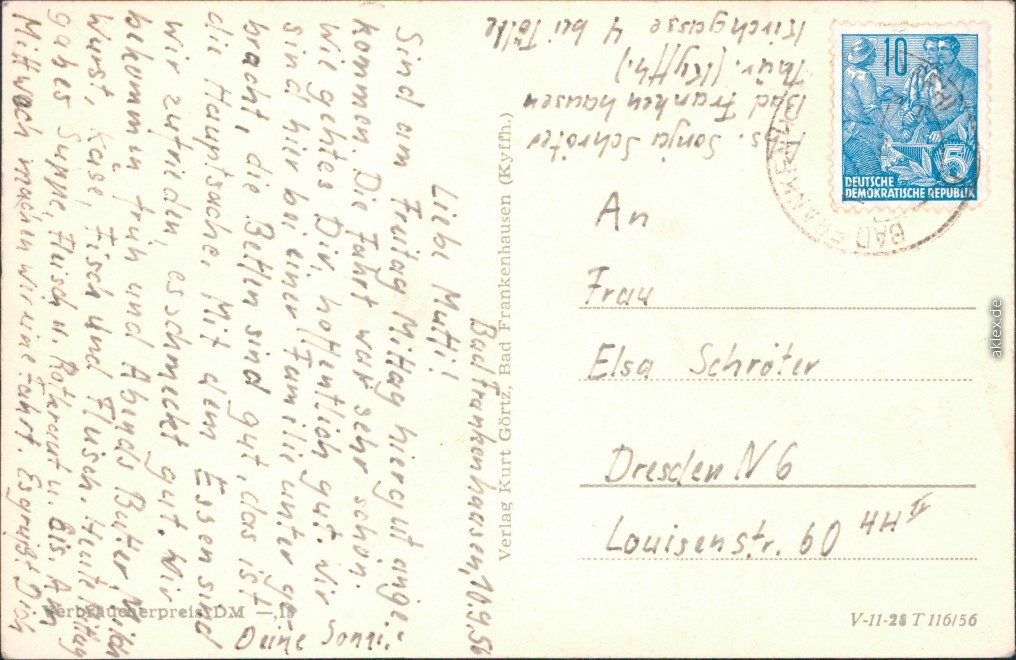 Bad Frankenhausen, 10.9.56
Liebe Mutti!
Sind am Freitag Mittag hier gut ange-
kommen. Die Fahrt war sehr schön.
Wie geht es Dir, hoffentlich gut. Wir
sind hier bei einer Familie unterge-
bracht, die Betten sind gut, das ist
die Hauptsache. Mit dem Essen sind
wir zufrieden, es schmeckt gut. Wir
bekomm'n früh und Abends Butter, Milch
Wurst, Käse, Fisch und Fleisch. Heute Mittag
gab es Suppe, Fleisch u. Rotkraut u. Eis. Am
Mittwoch machen wir eine Fahrt. Es grüßt Dich
Deine Sonni.
Verbraucherpreis DM —,18
Verlag Kurt Görtz, Bad Frankenhausen (Kyffh.)
As. Sonja Schröter
Bad Frankenhausen
Thür. (Kyffh.)
Kirchgasse 4 bei Tölle
10
5
DEUTSCHE
DEMOKRATISCHE REPUBLIK
BAD FRANKENHAUSEN
An
Frau
Elsa Schröter
Dresden N 6
Louisenstr. 60 4H II
V-11-28 T 116/56
aklex.de